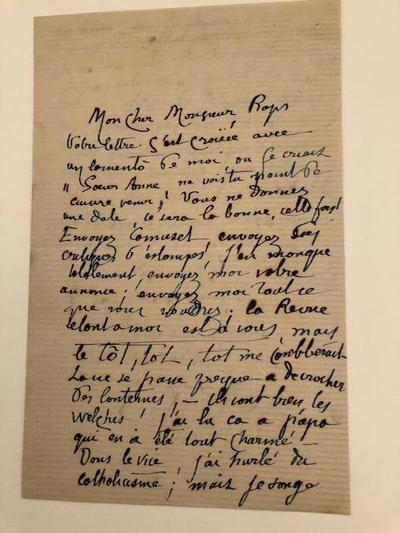 Mon cher Monsieur Rops
Votre lettre s'est croisée avec
un lamento de moi, où je criais
" Sœur Anne, ne vois tu point de
cuivre venir, ! Vous me donnez
une date, ce sera la bonne, cette fois!
Envoyez envoyez des
critiques d'estampes! j'en manque
totalement, envoyez moi votre
annonce! envoyez moi tout ce
que vous voudrez; la Revue
et moi est à vous, mais
le tôt, tôt, tot me
La se passe presque a décrocher
des lanternes — Ils vont bien les
Welches! j'ai lu ca a papa
qui en à été tout charmé —
Dans le vice j'ai hurlé du
catholicisme; mais je songe